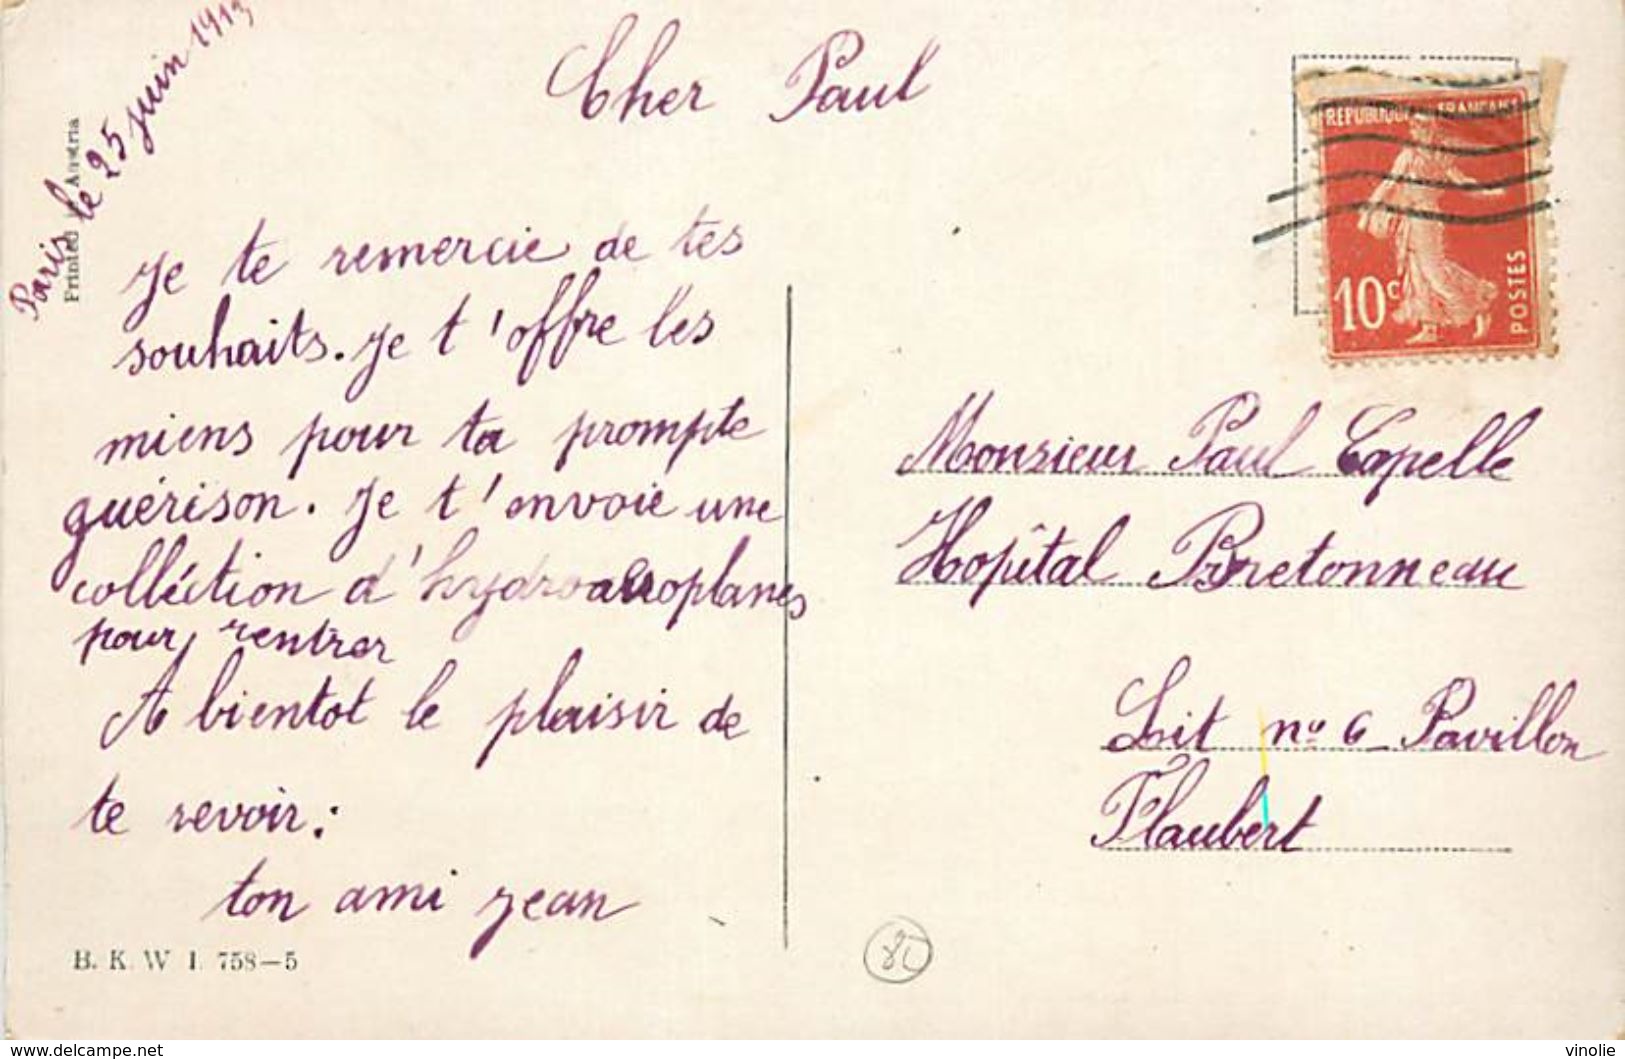 Paris le 25 juin 1913
Printed Austria
Cher Paul
Je te remercie de tes
souhaits. Je t'offre les
miens pour ta prompte
guérison. Je t'envoie une
colléction d'hydroaeroplanes
pour rentrer
A bientot le plaisir de
te revoir.
ton ami jean
B. K. W I. 758-5
REPUBLIQUE FRANÇAISE
10c
POSTES
Monsieur Paul Capelle
Hopîtal Bretonneau
Lit no 6 Pavillon
Flaubert
www.delcampe.net
vinolie